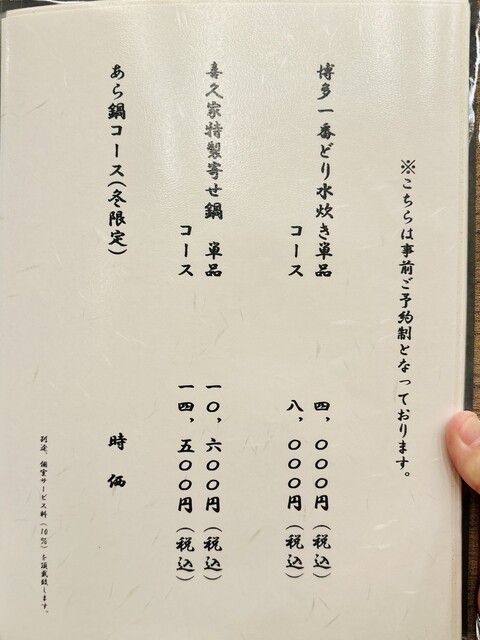 ※こちらは事前ご予約制となっております。
博多一番どり水炊き単品 四、〇〇〇円(税込)
コース 八、〇〇〇円(税込)
喜久家特製寄せ鍋 単品 一〇、六〇〇円(税込)
コース 一四、五〇〇円(税込)
あら鍋コース(冬限定) 時価
別途、個室サービス料(10%)を頂戴致します。